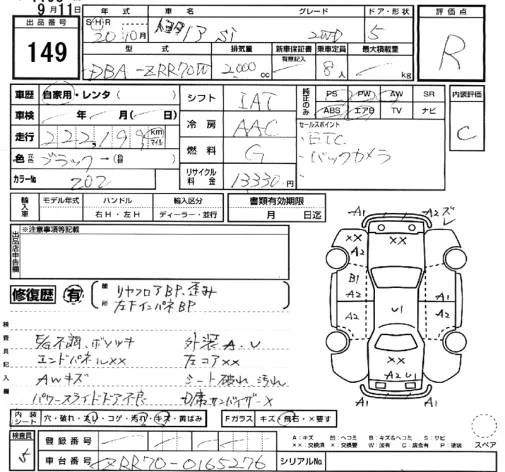 9月11日
出品番号 149
年式 車名 グレード ドア・形状 評価点
S・H・R 20年10月 ﾄﾖﾀ Si 2WD 5 R
型式 排気量 新車保証書 有意記入 乗車定員 最大積載量
DBA-ZRR70W 2000cc 8人 kg
車歴 自家用・レンタ シフト IAT 純正のみ PS PW AW SR 内装評価
車検 年 月( 日) 冷房 AAC ABS エアB TV ナビ C
走行 222,199 km マイル セールスポイント
色 元色 ブラック→ 燃料 G ・ETC
カラーNo 202 リサイクル料金 13330円 ・バックカメラ
輸入車 モデル年式 ハンドル 輸入区分 書類有効期限
右H・左H ディーラー・並行 月 日迄
出品店申告欄 ※注意事項等記載
修復歴 有 箇所 リヤフロアBP.歪み
左下インパネBP
検査員記入欄
外装A.U
エンドパネルXX 左コアXX
AWキズ シート破れ 汚れ
パワースライドドア不良
A1 A1 A2 ズレ
XX XX A2
A2 A2
B1 A2 U1 A1 A1
XX
A2 U1
A1 A1
内装シート 穴・破れ・スレ・コゲ・汚れ・キズ・黄ばみ Fガラス キズ・飛石・X要す
A：キズ B：ヘコミ B：キズ&ヘコミ S：サビ
XX：交換済 X：交換要 W：加修有 C：腐食有 P：塗装 スペア
検査員 登録番号
車台番号 ZRR70-0165276 シリアルNo.